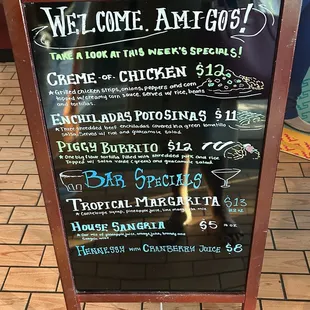 WELCOME, AMIGOS!
TAKE A LOOK AT THIS WEEK'S SPECIALS!
CREME-OF-CHICKEN $12
* Grilled chicken strips, onions, peppers and corn
topped w/ creamy corn sauce. Served w/ rice, beans
and tortillas.
ENCHILADAS POTOSINAS $11
* Three shredded beef enchiladas covered in a green tomatillo
salsa. Served w/ rice and guacamole salad.
PIGGY BURRITO $12
* One big flour tortilla filled with shredded pork and rice
topped w/ salsa verde (green) and guacamole salad.
BAR SPECIALS
TROPICAL MARGARITA $13
pineapple juice,
HOUSE SANGRIA $5
* Our mix of pineapple juice, orange juice, brandy and
HENNESSY WITH CRANBERRY JUICE $8